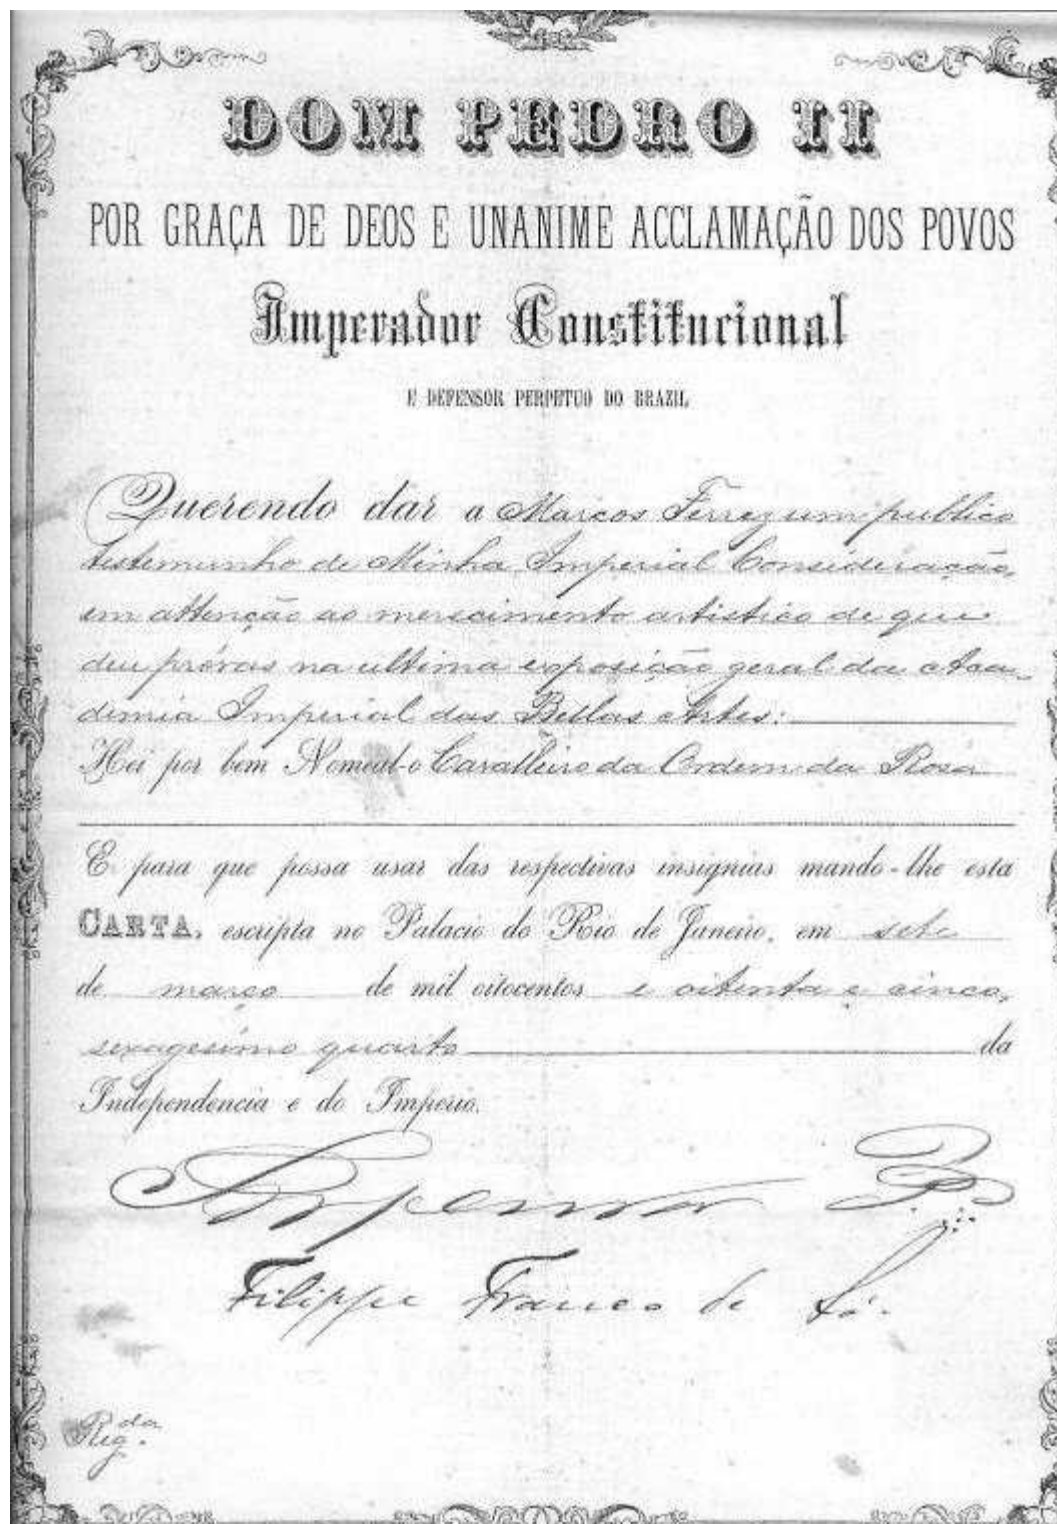 DOM PEDRO II
POR GRAÇA DE DEOS E UNANIME ACCLAMAÇÃO DOS POVOS
Imperador Constitucional
E DEFENSOR PERPETUO DO BRAZIL
Querendo dar a Marcos Ferrez um publico
testemunho de Minha Imperial Consideração,
em attenção ao merecimento artistico de que
deu próvas na ultima exposição geral da Aca
demia Imperial das Bellas Artes:
Hei por bem Nomeal-o Cavalleiro da Ordem da Rosa
E para que possa usar das respectivas insignias mando-lhe esta
CARTA, escripta no Palacio do Rio de Janeiro, em sete
de março de mil oitocentos e oitenta e cinco,
sexagesimo quarto da
Independencia e do Imperio.
Imperador P.
Filippe Franco de Sá.
Reg.da